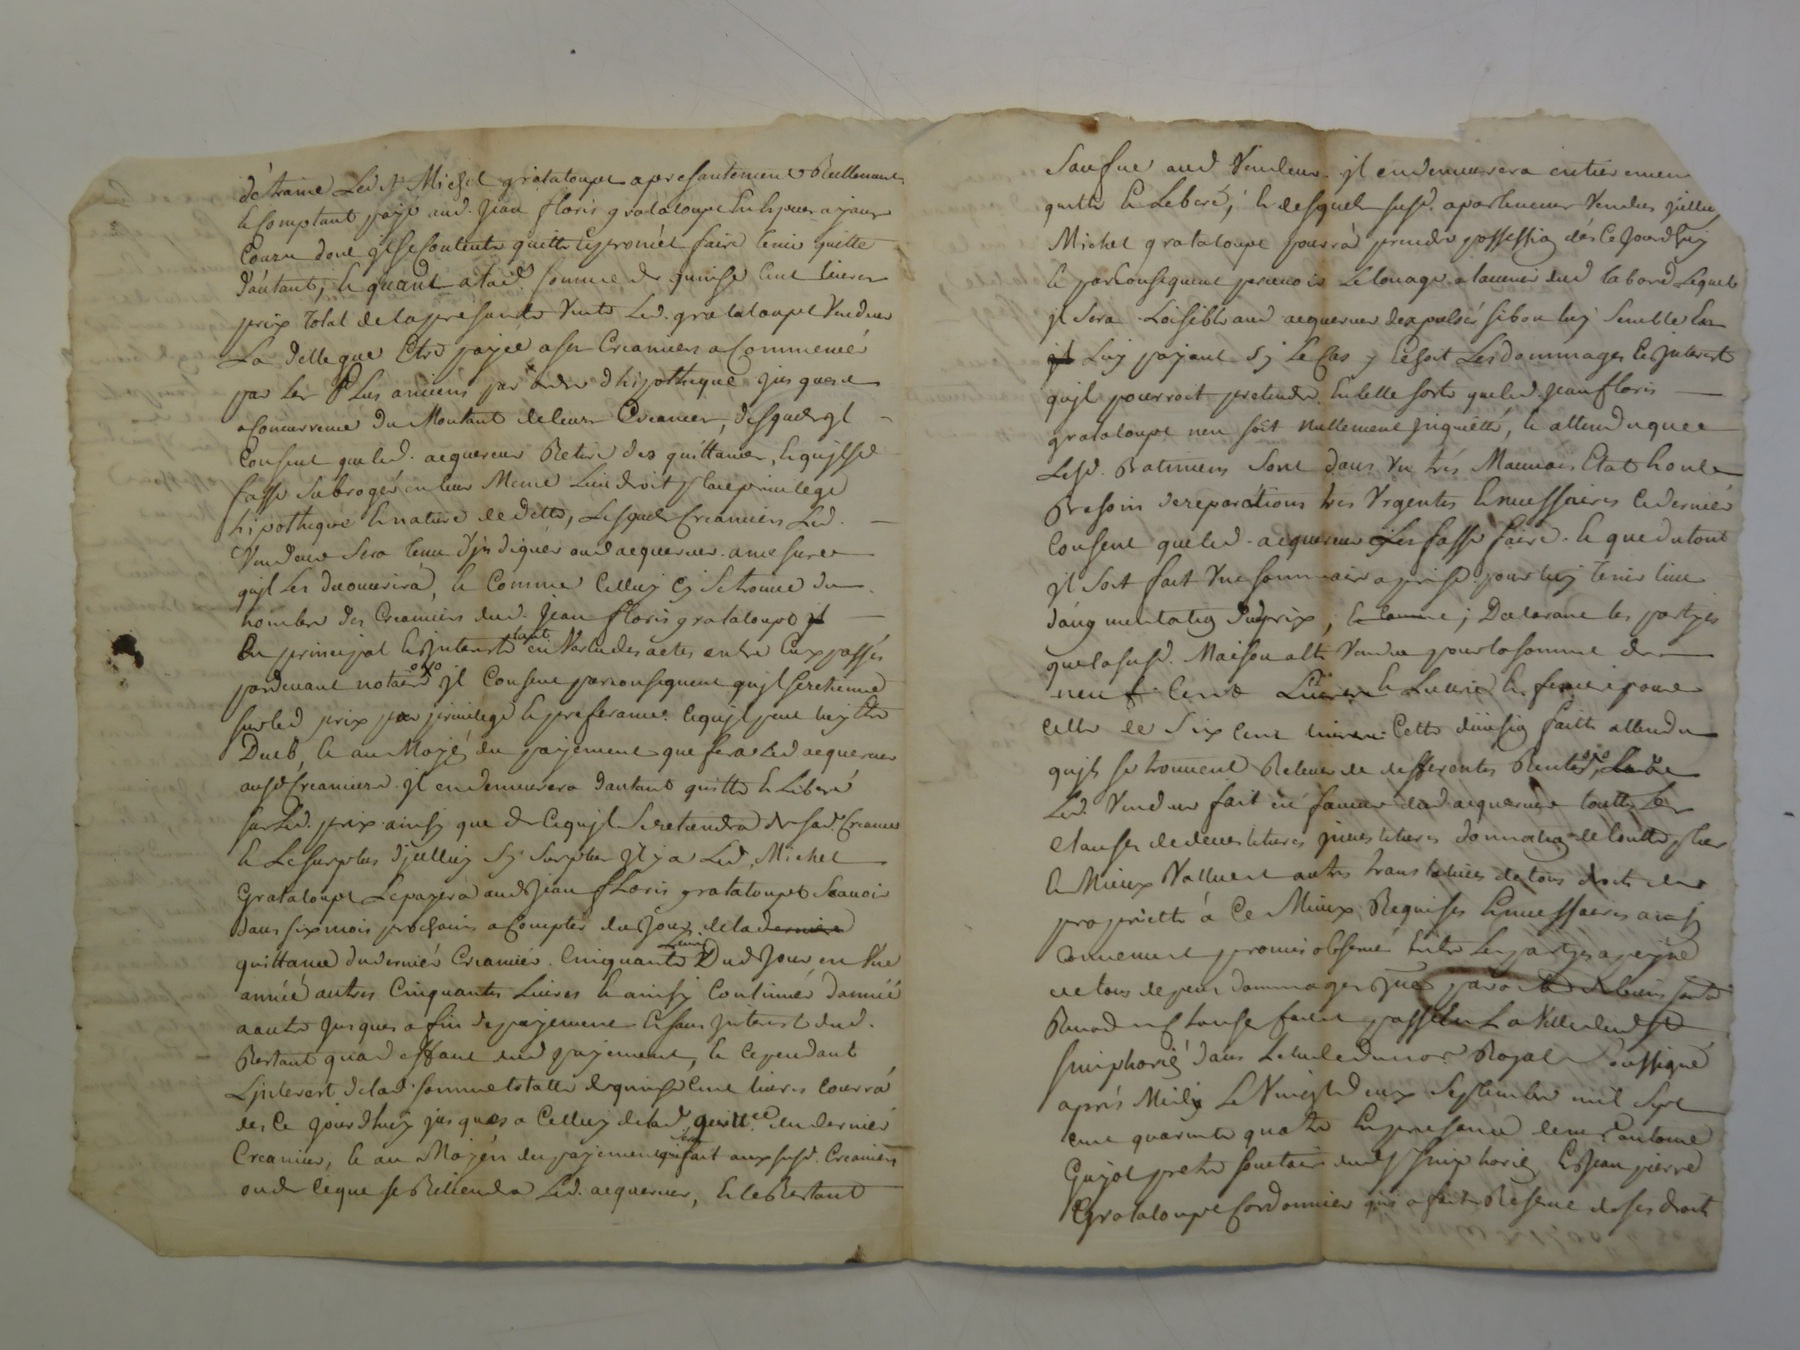 d'étraine Led St Michel grataloupe apresantement Reellement
le Comptant payé aud. Jean floris grataloupe En Especes ayant
Cours dont il se Contente quitte Et promet faire tenir quitte
d'autant; Et quant a lad. somme de quinse Cent livres
prix total de la présante Vente Led. grataloupe Vendeur
La délégue Etre payée a ses Creanciers a Commencé
par Les Plus anciens par ordre d'hipotheque jusques a
Concurrence du Montant de leurs Creances, desquels il
Consent que led. acquereur Retire des quittances, Et qu'il se
fasse Subroger en leur Meme Lieu droit place privilege
hipotheque Et nature de dette, Lesquels Creanciers Led.
Vendeur Sera tenu d'jndiquer aud acquereur a mesure
qu'il Les decouvrira, Et Comme Celluy Cy Se trouve du
nombre des Creanciers dud. Jean floris grataloupe
En principal Et Jnterests tant en Vertu des actes entre Eux passés
pardevant notaire il Consent par consequent qu'il se retienne
sur led prix par privilege Et preferance Ce qu'il peut luy Etre
Dueb, Et au Moyé du payement que fera Led acquereur
ausd Creanciers il en demeurera d'autant quitte Et Liberé
sur Led. prix ainsy que de Ce qu'il Se retiendra de sad. Creance
Et Le surplus d'jcelluy Sy Surplus Il y a Led. Michel
Grataloupe Le payera aud Jean floris grataloupe Scavoir
dans six mois prochains a Compter du Jour de la derniere
quittance du dernier Creancier Cinquante Livres Dud Jour en Une
année autres Cinquantes Livres Et ainsy Continuer d'année
a autre Jusques a fin de payement Et sans Jnterest dud.
Restant quand effaut dud payement, Et Cependant
L'jnterest de lad somme totalle de quinse Cent livres Courra
des Ce jourd'huy jusques a Celluy de lad quittce du dernier
Creancier, Et au Moyen du payement qui sera fait aux susd. Creanciers
ou de Ce que se Retiendra Led. acquereur, Et le Restant
Sauf due aud Vendeur il en demeurera entierement
quitte Et Liberé; Et desquels susd. apartements Vendus jcelluy
Michel grataloupe pourra prendre possession dés Ce Jourd'huy
Et par Consequent percevoir Le louage a l'avenir dud labord Lequel
il Sera Loisible aud acquereur d'expulser si bon luy Semble En
Luy payant Sy Le Cas y Echoit Les dommages Et Jnterests
qu'il pourroit pretendre En telle sorte que led. Jean floris
grataloupe n'en soit Nullement jnquiété, Et attendu que
Lesd. Batimens Sont dans Un trés Mauvais Etat Et ont
Besoin de reparations tres Urgentes Et necessaires Ce dernier
Consent que led. acquereur Les fasse faire Et que du tout
il Soit fait Une sommaire aprise pour luy tenir lieu
d'augmentation du prix, Declarant les partyes
que la susd. Maison a Eté Vendue pour la somme de
neuf Cent Livres Et
Celle de Six Cent livres Cette division faitte attendu
qu'ils se trouvent Relever de differentes Rentes
Led. Vendeur fait en faveur dud acquereur touttes Les
Clauses de devestitures jnvestitures donnation de toutte plus
Et Mieux Vallue Et autres translatives de tous droits de
proprietté á Ce Mieux Requises Et necessaires ainsy
Convenu Et promis observer Entre Les partyes a peine
de tous depens dommages
Renond. Et Clause fait Et passé La Ville dud St
Simphorien dans L'etude du nore Royal Soussigné
aprés Midy Le Vingt deux Septembre mil Sept
Cent quarante quatre En presance de mr antoine
Guyot pretre societaire dud St Simphorien Et Jean pierre
Grataloupe Cordonnier qui a fait Reserve de ses droits